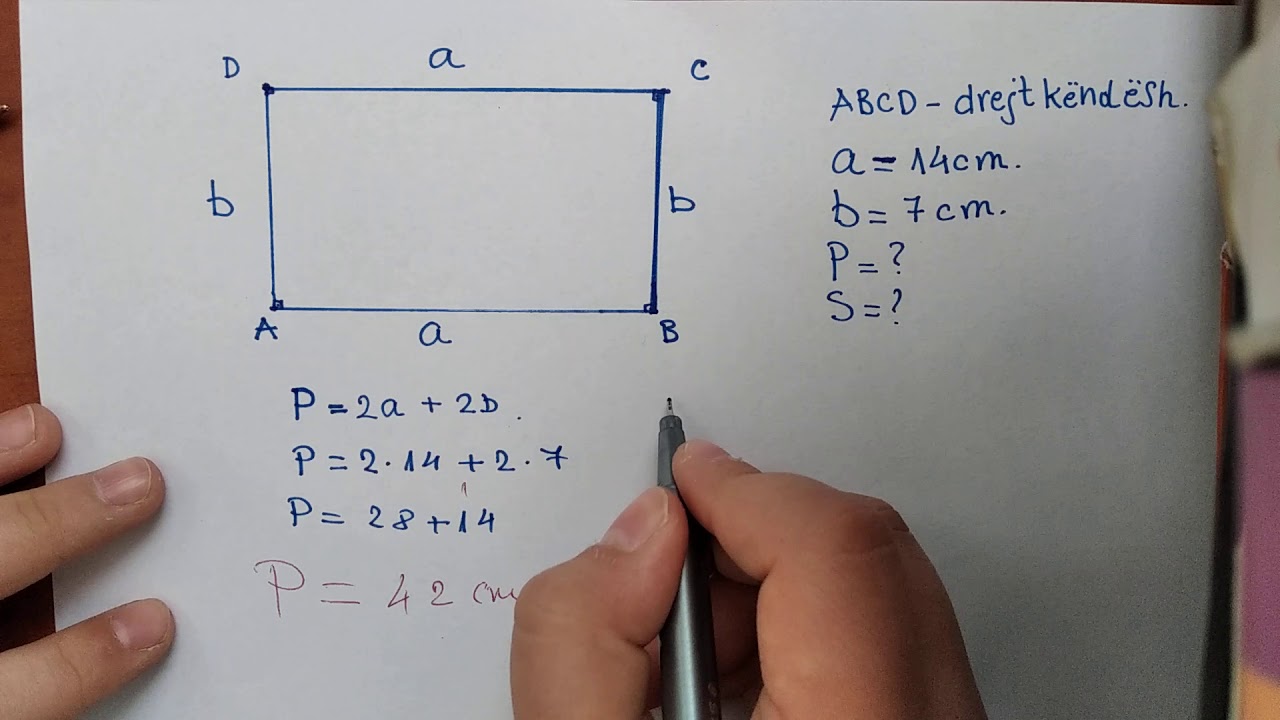 D a C
b b
A a B
ABCD - drejtkëndësh.
a = 14cm.
b = 7 cm.
P = ?
S = ?
P = 2a + 2b.
P = 2·14 + 2·7
P = 28 + 14
P = 42 cm